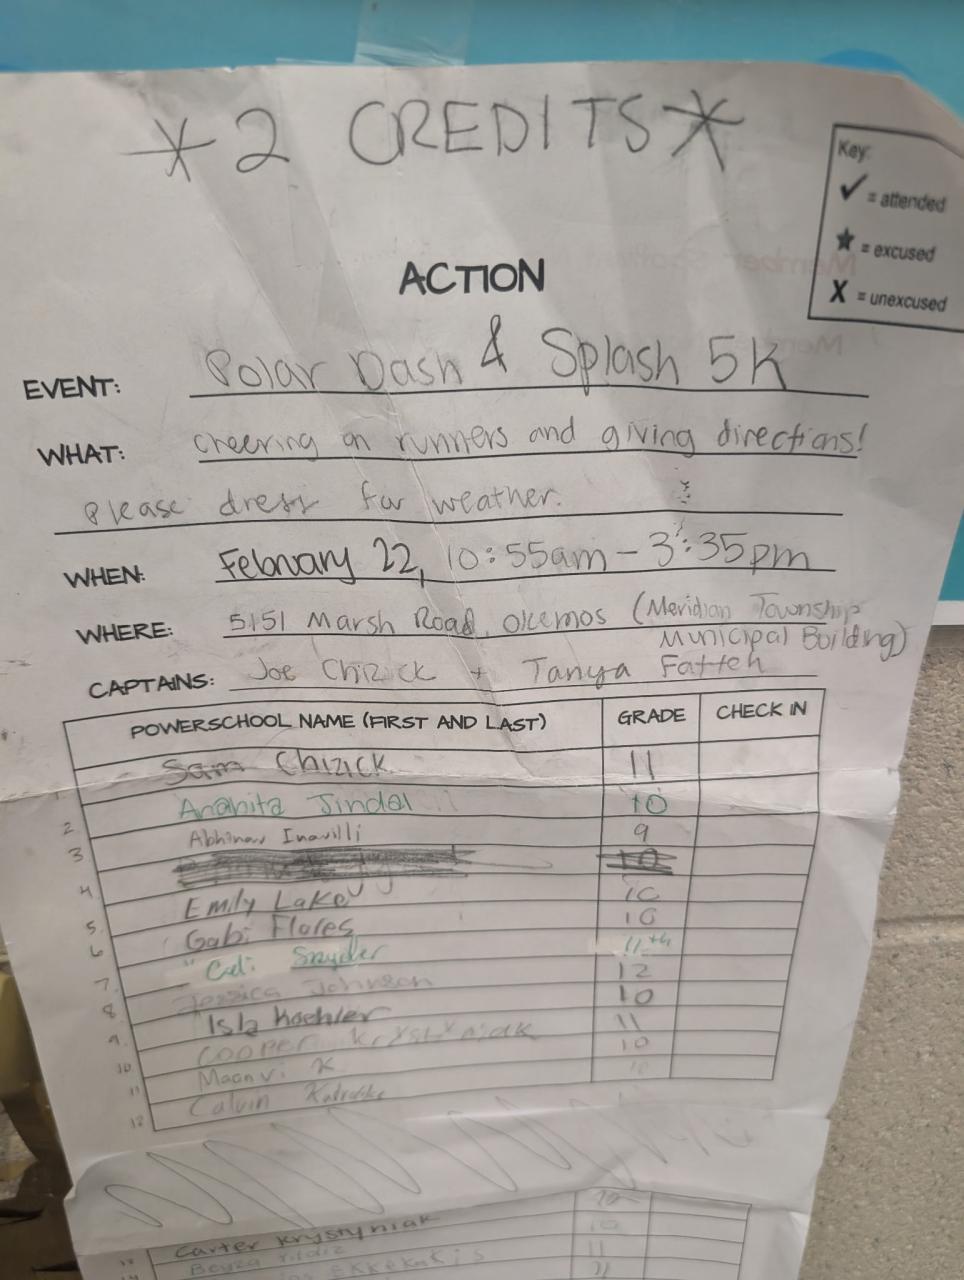 *2 CREDITS*
Key:
✓ = attended
★ = excused
X = unexcused
ACTION
EVENT: Polar Dash & Splash 5K
WHAT: cheering on runners and giving directions!
please dress for weather.
WHEN: February 22, 10:55am - 3:35pm
WHERE: 5151 Marsh Road, Okemos (Meridian Township
Municipal Building)
CAPTAINS: Joe Chizick + Tanya Fatteh
POWERSCHOOL NAME (FIRST AND LAST) GRADE CHECK IN
Sam Chizick 11
2 Anahita Jindal 10
3 Abhinav 9
4 10
5 Emily Lake 10
6 Gabi Flores 10
7 Snyder 11th
8 Jessica Johnson 12
9 Isla Koehler 10
10 Cooper Krystyniak 11
11 Maanvi K 10
12 Calvin 10
Carter Krystyniak
11